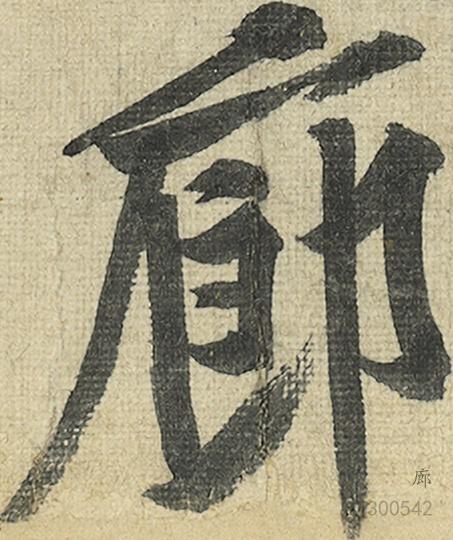 廊
廊
300542